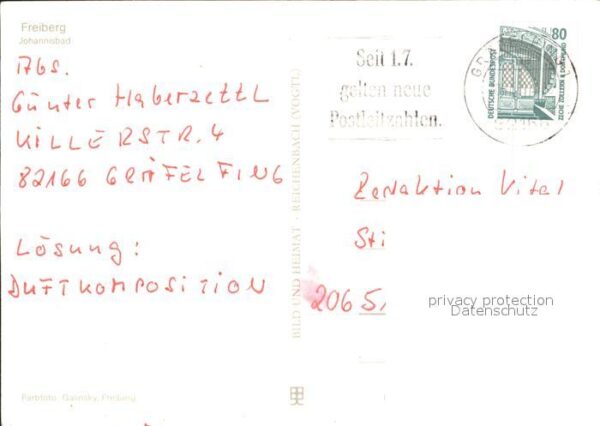 Freiberg
Johannisbad
Abs.
Günter Haberzettl
KILLERSTR. 4
82166 GRÄFELFING
Lösung:
DUFTKOMPOSITION
Farbfoto: Galinsky, Freiberg
BILD UND HEIMAT · REICHENBACH (VOGTL)
Seit 1.7.
gelten neue
Postleitzahlen.
80
DEUTSCHE BUNDESPOST
ZECHE ZOLLERN II DORTMUND
82166
Redaktion Vital
Sti
206
privacy protection
Datenschutz